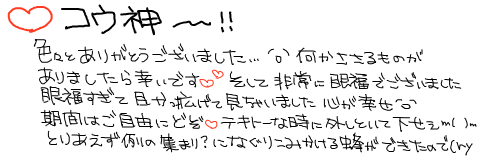 ♡ コウ神〜!!
色々とありがとうございました…^o^ 何かささるものが
ありましたら幸いです♡♡ そして非常に眼福でございました
眼福すぎて目かっ拡げて見ちゃいました 心が幸せ^o^
期間はご自由にどぞ♡テキトーな時に外しといて下せェm( )m
とりあえず例の集まり?になぐりこみかける蜂ができたので(ry